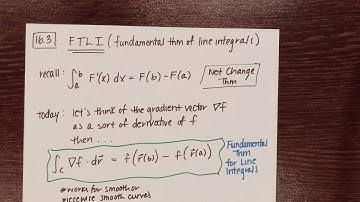 16.3 FTLI (fundamental thm of line integrals)
recall: ∫ₐᵇ F'(x) dx = F(b) - F(a) Net Change Thm
today: let's think of the gradient vector ∇f
as a sort of derivative of f
then ...
∫_C ∇f · dr⃗ = f(r⃗(b)) - f(r⃗(a))
Fundamental
Thm
for Line
Integrals
* works for smooth or
piecewise smooth curves